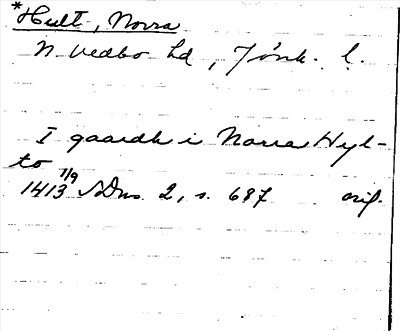 *Hult, Norra
N. Vedbo hd, Jönk. l.
I gaardh i Norra Hyl-
to
1413 7/9 SDns 2, s. 687 orig.